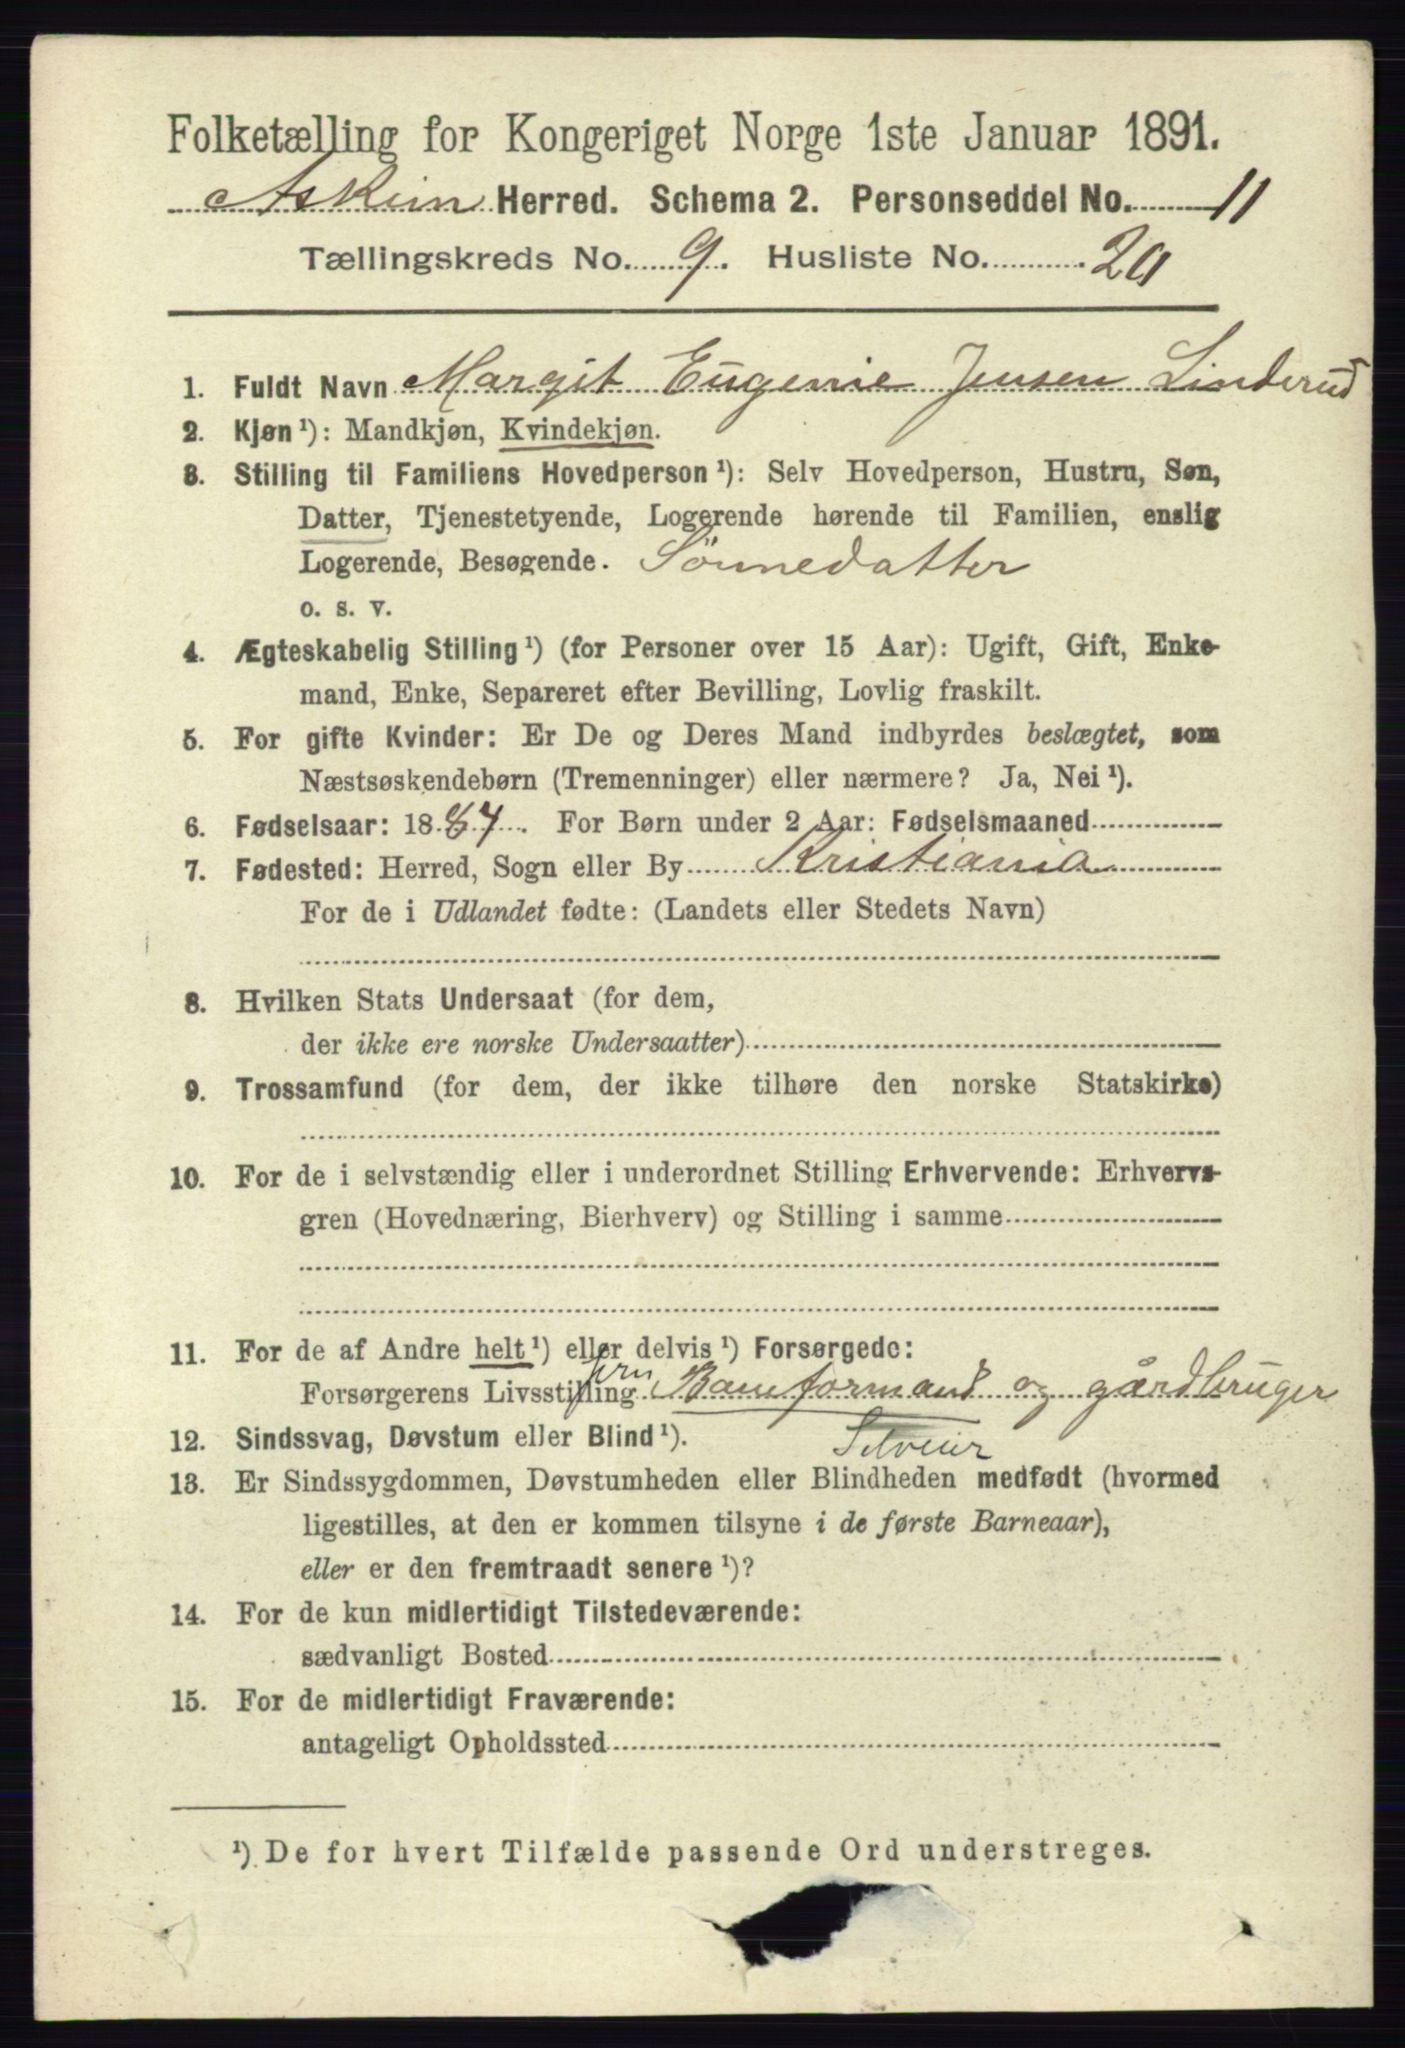 Folketælling for Kongeriget Norge 1ste Januar 1891.
Askim Herred. Schema 2. Personseddel No. 11
Tællingskreds No. 9. Husliste No. 20
1. Fuldt Navn Margit Eugenie Jensen Linderud
2. Kjøn ¹): Mandkjøn, Kvindekjøn.
3. Stilling til Familiens Hovedperson ¹): Selv Hovedperson, Hustru, Søn,
Datter, Tjenestetyende, Logerende hørende til Familien, enslig
Logerende, Besøgende. Sönnedatter
o. s. v.
4. Ægteskabelig Stilling ¹) (for Personer over 15 Aar): Ugift, Gift, Enke-
mand, Enke, Separeret efter Bevilling, Lovlig fraskilt.
5. For gifte Kvinder: Er De og Deres Mand indbyrdes beslægtet, som
Næstsøskendebørn (Tremenninger) eller nærmere? Ja, Nei ¹).
6. Fødselsaar: 1887. For Børn under 2 Aar: Fødselsmaaned
7. Fødested: Herred, Sogn eller By Kristiania
For de i Udlandet fødte: (Landets eller Stedets Navn)
8. Hvilken Stats Undersaat (for dem,
der ikke ere norske Undersaatter)
9. Trossamfund (for dem, der ikke tilhøre den norske Statskirke)
10. For de i selvstændig eller i underordnet Stilling Erhvervende: Erhvervs-
gren (Hovednæring, Bierhverv) og Stilling i samme
11. For de af Andre helt ¹) eller delvis ¹) Forsørgede:
Forsørgerens Livsstilling Baneformand og gårdbruger
12. Sindssvag, Døvstum eller Blind ¹). Selveier
13. Er Sindssygdommen, Døvstumheden eller Blindheden medfødt (hvormed
ligestilles, at den er kommen tilsyne i de første Barneaar),
eller er den fremtraadt senere ¹)?
14. For de kun midlertidigt Tilstedeværende:
sædvanligt Bosted
15. For de midlertidigt Fraværende:
antageligt Opholdssted
¹) De for hvert Tilfælde passende Ord understreges.